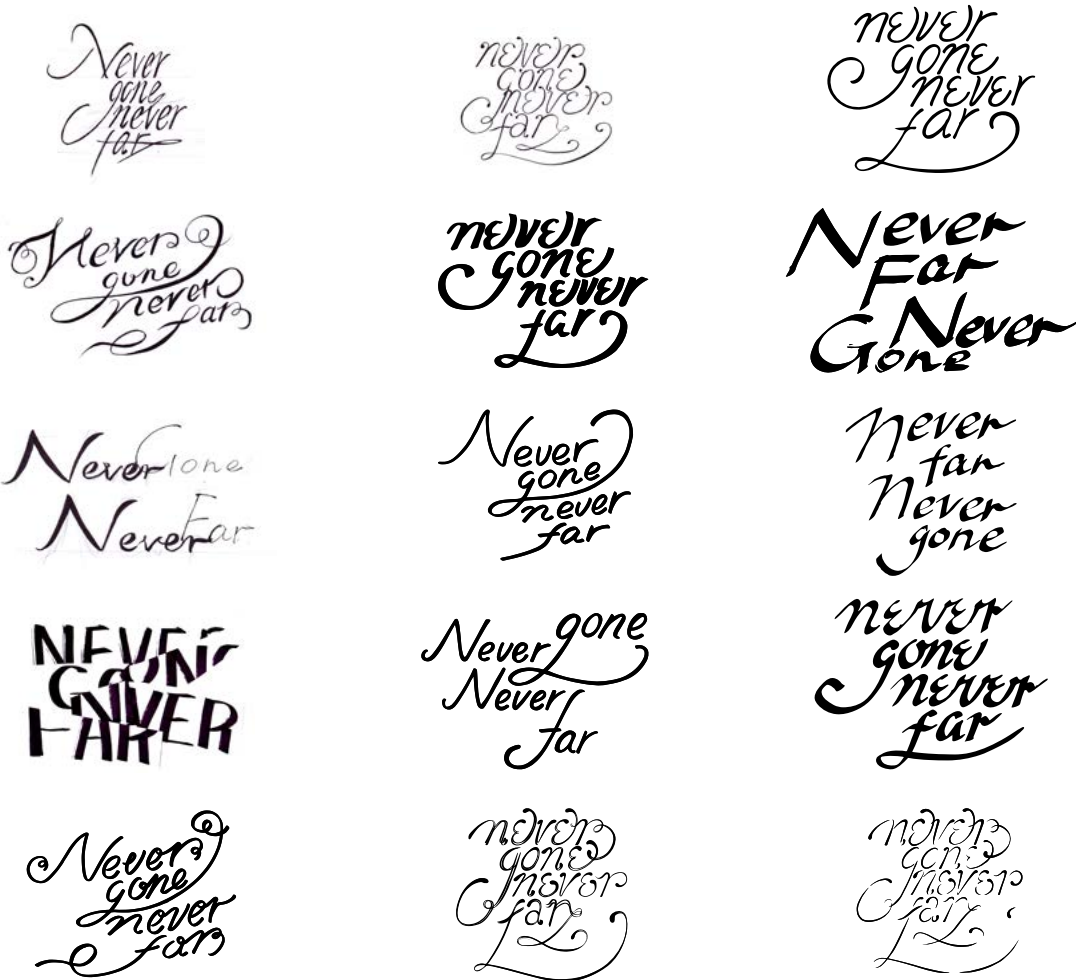 Never
gone
never
far
never
gone
never
far
never
gone
never
far
Never
gone
never
far
never
gone
never
far
Never
Far
Never
Gone
Never Gone
Never Far
Never
gone
never
far
never
far
Never
gone
NEVER
GONE
NEVER
FAR
Never gone
Never
far
never
gone
never
far
Never
gone
never
far
never
gone
never
far
never
gone
never
far